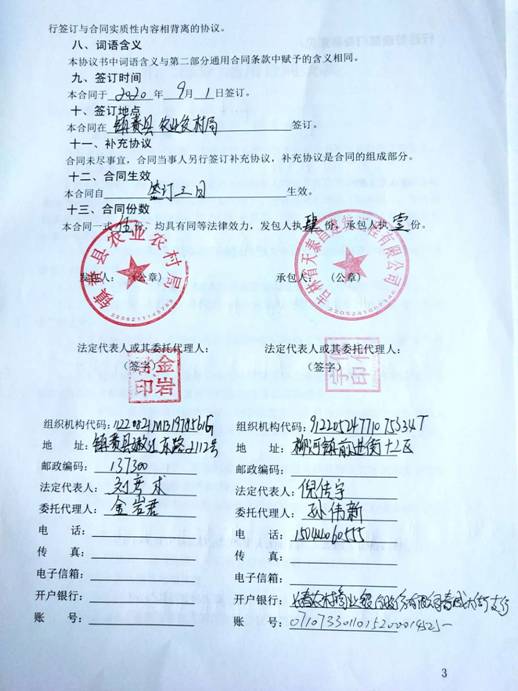 行签订与合同实质性内容相背离的协议。
八、词语含义
本协议书中词语含义与第二部分通用合同条款中赋予的含义相同。
九、签订时间
本合同于 2020 年 9 月 1 日签订。
十、签订地点
本合同在 镇赉县农业农村局 签订。
十一、补充协议
合同未尽事宜，合同当事人另行签订补充协议，补充协议是合同的组成部分。
十二、合同生效
本合同自 签订之日 生效。
十三、合同份数
本合同一式 伍 份，均具有同等法律效力，发包人执 肆 份，承包人执 壹 份。
镇赉县农业农村局
发包人：（公章） 承包人：（公章）
法定代表人或其委托代理人： 法定代表人或其委托代理人：
（签字） （签字）
金岩
印
组织机构代码： 组织机构代码：
地 址：镇赉县嫩江东路2112号 地 址：柳河镇前进街
邮政编码：137300 邮政编码：
法定代表人： 法定代表人：倪传宇
委托代理人：金岩君 委托代理人：孙伟新
电 话： 电 话：
传 真： 传 真：
电子信箱： 电子信箱：
开户银行： 开户银行：
账 号： 账 号：
3